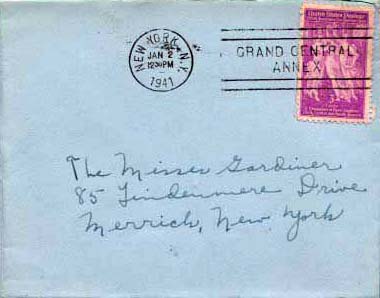 NEW YORK, N.Y.
JAN 2
12 30 PM
1941
GRAND CENTRAL
ANNEX
United States Postage
The Misses Gardiner
85 Lindenmere Drive
Merrick, New York